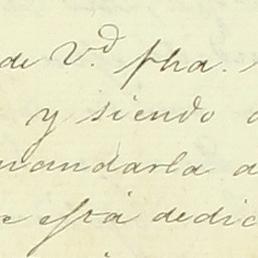 de V.d fha.
y siendo
mandarla a
e está dedic